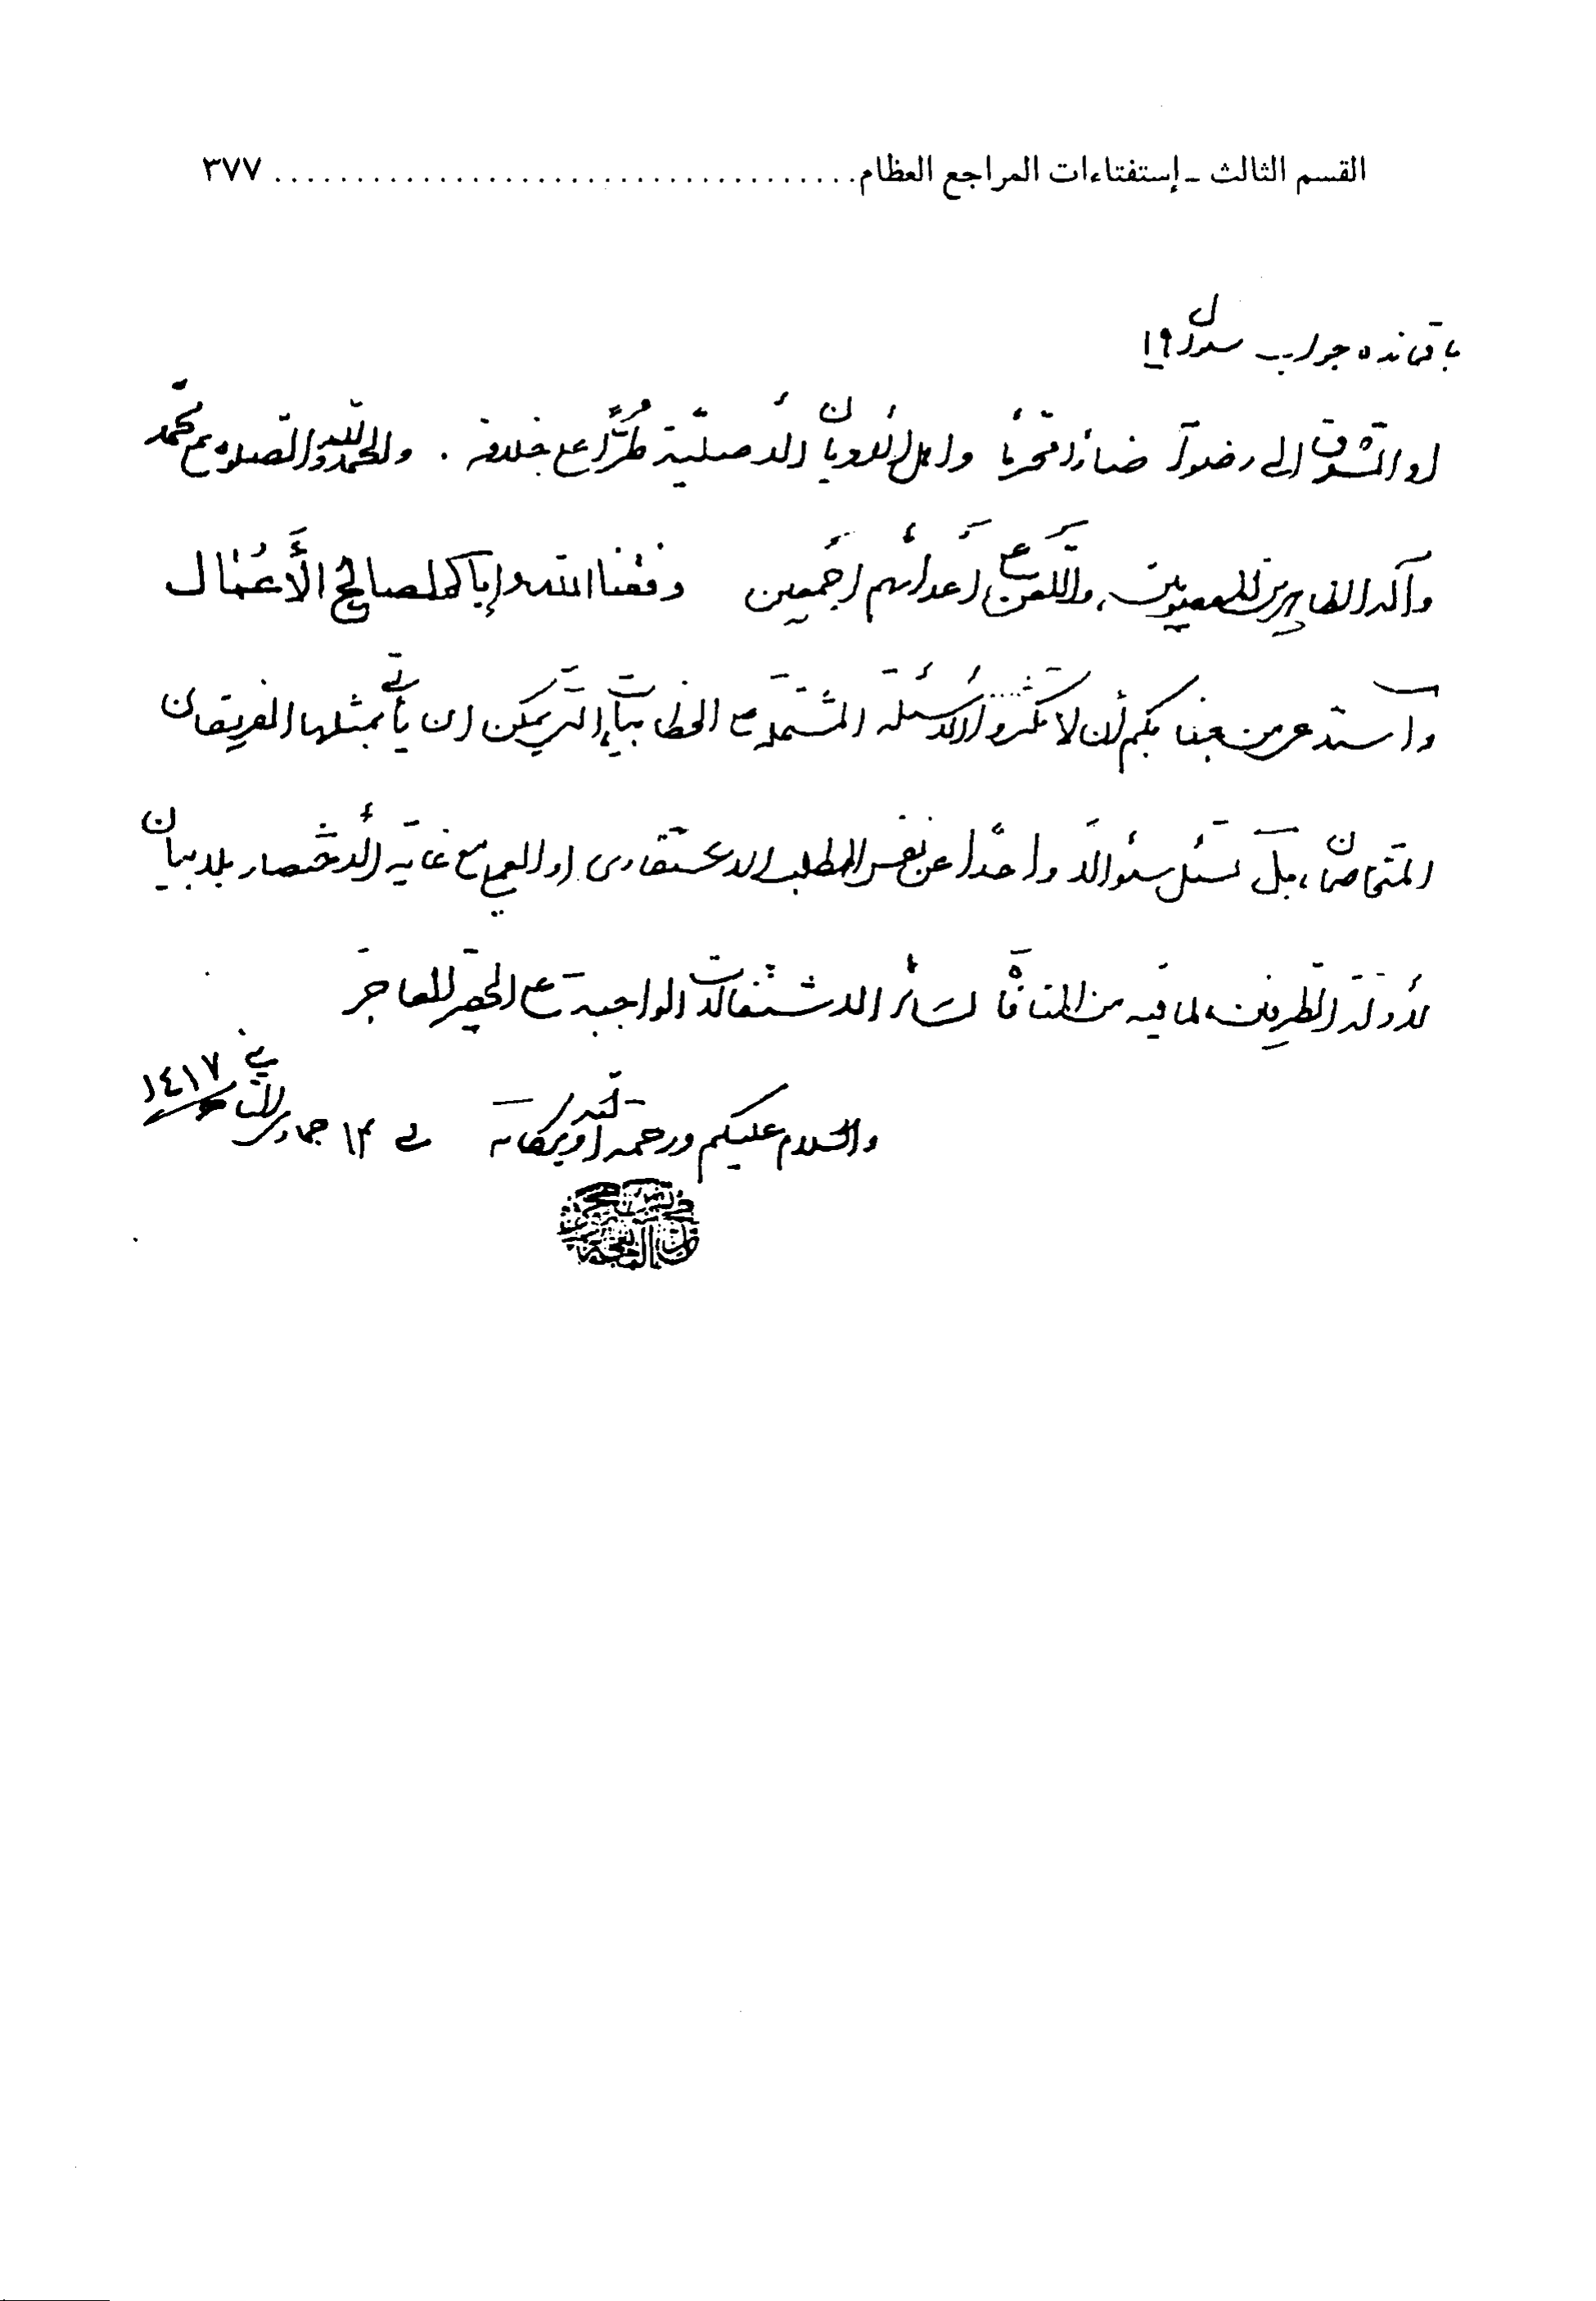 القسم الثالث ـ إستفتاءات المراجع العظام ................................... ٣٧٧
باقمانده جواب سؤال ١٩
او التشوق إلى رضوان واهل الأديان الأصلية طُرًّا على خلافه . والحمد لله والصلوة على محمد
وآله الطاهرين المعصومين، واللعن على أعدائهم أجمعين وفقنا الله وإياكم لصالح الأَعمال
وأستدعي من جنابكم أن لا تكثروا الأسئلة المشتملة على الخطابيات التي يمكن ان يأتي بمثلها الفريقان
المتخاصمان، بل تسئل سئوالاً واحداً عن نفس المطلب الاعتقادى او العملي مع غاية الأختصار بلا بيان
لأدلة الطرفين، لما فيه من المنافاة لسائر الاشتغالات الواجبة على الحقير العاجز
والسلام عليكم ورحمة الله وبركاته في ١٣ جمادى الثاني ١٤١٧